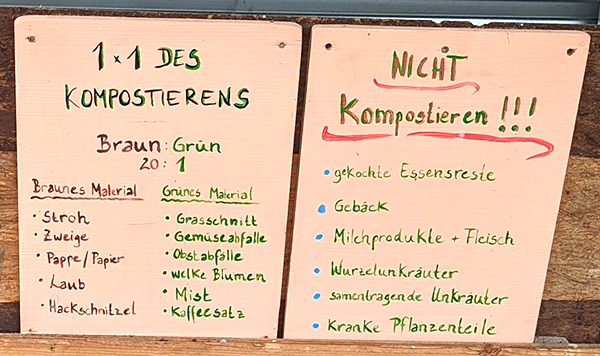 1x1 DES
KOMPOSTIERENS
Braun: Grün
20: 1
Braunes Material
• Stroh
• Zweige
• Pappe/Papier
• Laub
• Hackschnitzel
Grünes Material
• Grasschnitt
• Gemüseabfälle
• Obstabfälle
• welke Blumen
• Mist
• Kaffeesatz
NICHT
Kompostieren !!!
• gekochte Essensreste
• Gebäck
• Milchprodukte + Fleisch
• Wurzelunkräuter
• samentragende Unkräuter
• kranke Pflanzenteile